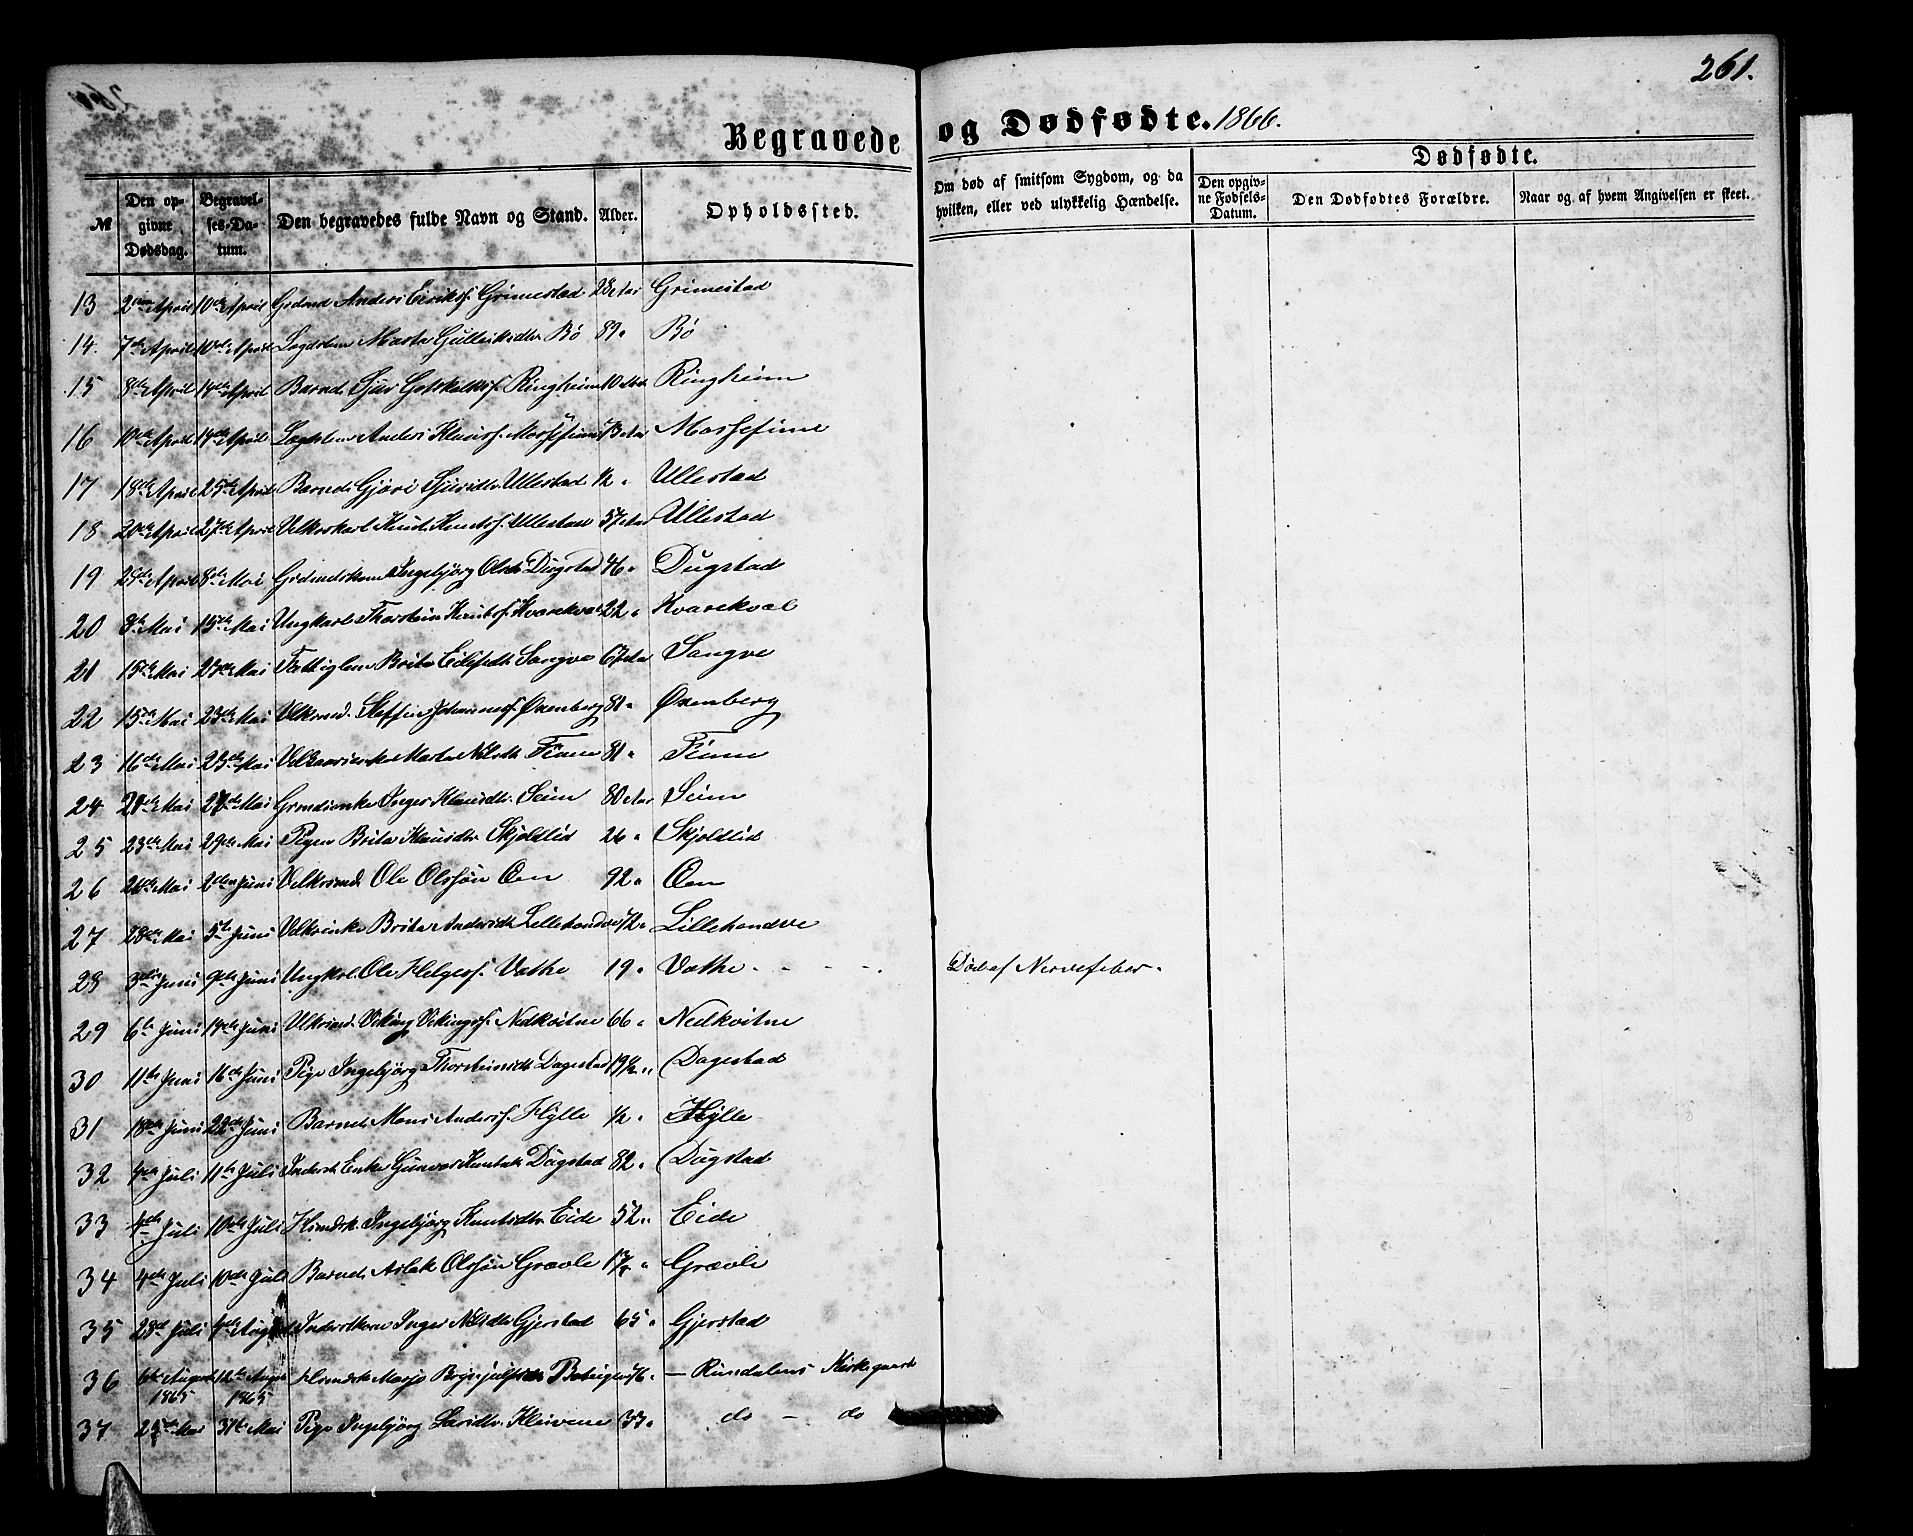 261.
Begravede og Dødfødte. 1866.
Dødfødte.
№ Den opgivne Dødsdag. Begravelses-Datum. Den begravedes fulde Navn og Stand. Alder. Opholdssted. Om død af smitsom Sygdom, og da hvilken, eller ved ulykkelig Hændelse. Den opgivne Fødsels-Datum. Den Dødfødtes Forældre. Naar og af hvem Angivelsen er skeet.
13 2den April 10de April Grdmd Anders Eiriks. Grimestad 28 Aar Grimestad
14. 7de April 10de April Lægdslem Marta Gulleiksdtr Bø 89 " Bö
15 8de April 14de April Barnet Sjur Gotskalks. Ringheim 10 Ringheim
16 10de April 14de April Lægdslem Anders Klaus. Mossefinne 73 Aar Mossefinne
17 18de April 25de April Barnet Gjøri Sjursdtr Ullestad ½ " Ullestad
18 20de April 27de April Velkaarkarl Knut Knuts. Ullestad 57 Aar Ullestad
19 29de April 8de Mai Grdmdskone Ingebjörg Olsdtr Dugstad 46 " Dugstad
20 8de Mai 15de Mai Ungkarl Thorstein Knuts. Kvarekval 22 " Kvarekval
21 15de Mai 23de Mai Fattiglem Brita Eilefsdtr Sangve 67 Aar Sangve
22 15de Mai 23de Mai Velkrmd. Steffen Johannes. Øxenberg 81 " Øxenberg
23 16de Mai 23de Mai Marta Nilsdtr Finne 81 " Finne
24 21de Mai 27de Mai Grmdienke Inger Klausdtr. Seim 80 Aar Seim
25 23de Mai 29de Mai Pigen Brita Klausdtr Skjoldlid 26 " Skjoldlid
26 26de Mai 2den Juni Velkrmd. Ole Olssøn Øen 92 " Øen
27 28de Mai 5te Juni Velkrenke Brita Andersdtr Lillehandve 72 " Lillehandve
28 3die Juni 9de Juni Ungkrl. Ole Helges. Vathe 19 " Vathe - - - - Død af Nervefeber.
29 6te Juni 14de Juni Velkrmd. Viking Vikings. Nedkvitne 66 " Nedkvitne
30 11te Juni 16de Juni Pige Ingebjörg Thorsteinsdtr Dagestad 19 Dagestad
31 18de Juni 22de Juni Barnet Mons Anders. Hylle ½ " Hylle
32 4de Juli 11te Juli Inderst Enke Gunvor Knutsdtr Dugstad 82 " Dugstad
33 4de Juli 10de Juli Hsmdsk. Ingebjörg Knutsdtr Eide 52 " Eide
34 4de Juli 10de Juli Barnet Aslak Olssøn Grævle Grævle
35 28de Juli 4de August Inderstkone Inger Nilsdtr Gjerstad 65 " Gjerstad
36 6te August 1865 12te August 1865 Hsmdsk Marjo Brynjulfsdtr 76 " — Rundalens Kirkegaard
37 25de Mai 31te Mai Pige Ingebjörg Larsdtr. Kleivene 33 " do — do